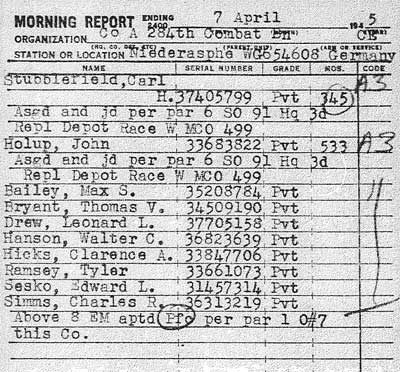 MORNING REPORT ENDING 2400 7 April 1945
ORGANIZATION Co A 284th Combat Bn CE
(HQ, CO, DET, ETC) (PARENT UNIT) (ARM OR SERVICE)
STATION OR LOCATION Niederasphe WG654608 Germany
NAME SERIAL NUMBER GRADE NOS. CODE
Stubblefield, Carl A3
H. 37405799 Pvt 345
Asgd and jd per par 6 SO 91 Hq 3d
Repl Depot Race W MCO 499
Holup, John 33683822 Pvt 533 A3
Asgd and jd per par 6 SO 91 Hq 3d
Repl Depot Race W MCO 499
Bailey, Max S. 35208784 Pvt "
Bryant, Thomas V. 34509190 Pvt
Drew, Leonard L. 37705158 Pvt
Hanson, Walter C. 36823639 Pvt
Hicks, Clarence A. 33847706 Pvt
Ramsey, Tyler 33661073 Pvt
Sesko, Edward L. 31457314 Pvt
Simms, Charles R. 36313219 Pvt
Above 8 EM aptd Pfc per par 1 O#7
this Co.